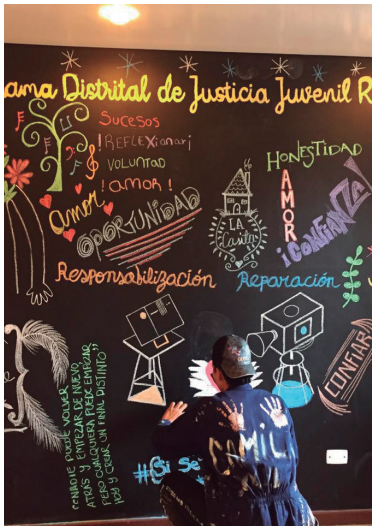 ama Distrital de Justicia Juvenil R
Sucesos
¡REFLEXionar!
VOLUNTAD
¡amor!
Amor
OPORTUNIDAD
LA
Casita
HONESTIDAD
AMOR
¡CONFIANZA!
Responsabilización
Reparación
CONFIAR
"NADIE PUEDE VOLVER
ATRÁS Y EMPEZAR DE NUEVO,
PERO CUALQUIERA PUEDE EMPEZAR
HOY Y CREAR UN FINAL DISTINTO"
#Si Se
CAMIL